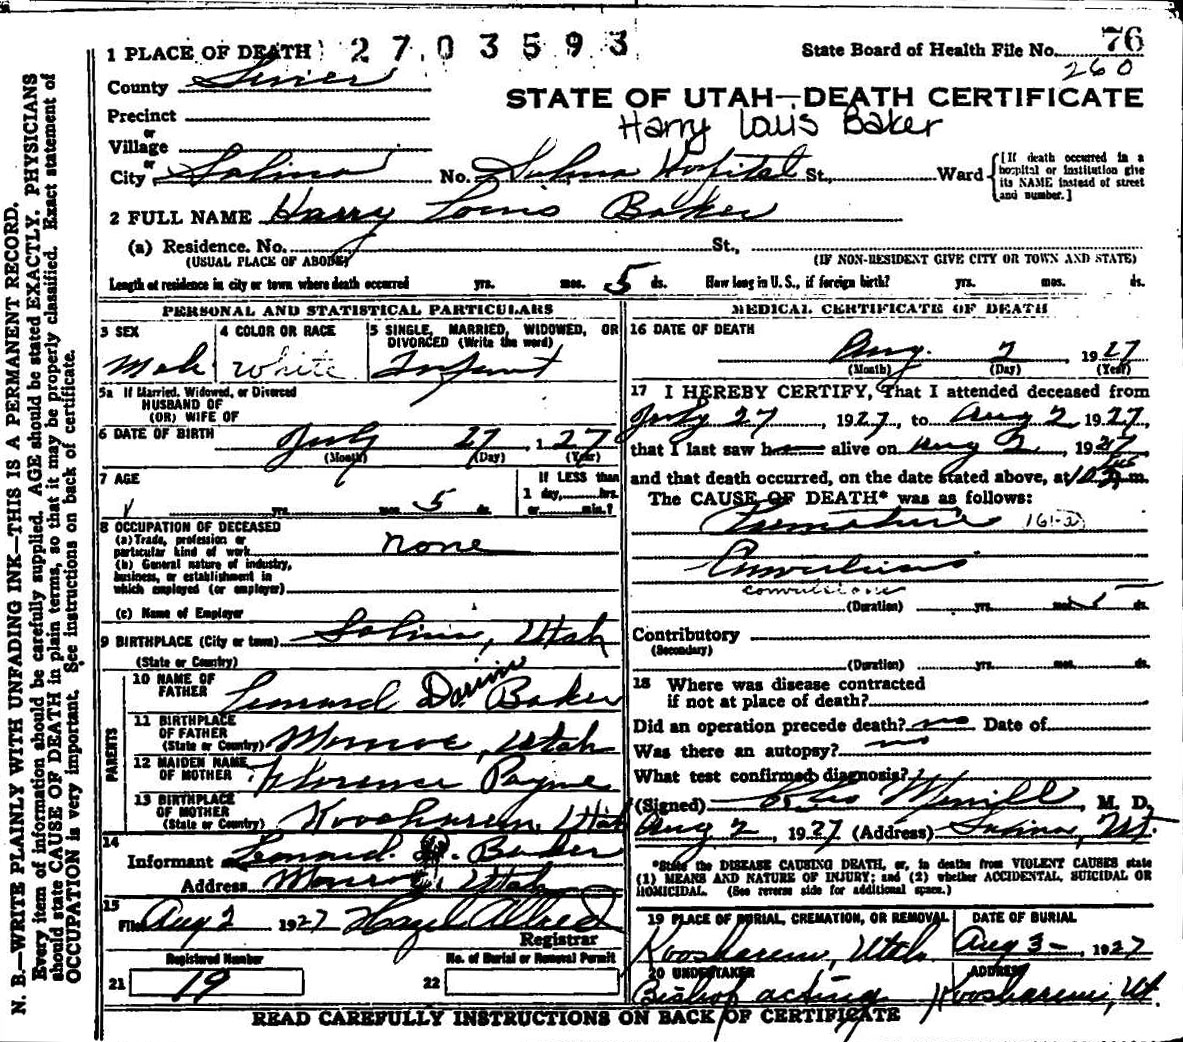 N. B.—WRITE PLAINLY WITH UNFADING INK—THIS IS A PERMANENT RECORD.
Every item of information should be carefully supplied. AGE should be stated EXACTLY. PHYSICIANS
should state CAUSE OF DEATH in plain terms, so that it may be properly classified. Exact statement of
OCCUPATION is very important. See instructions on back of certificate.
1 PLACE OF DEATH 2703593
State Board of Health File No. 76
260
County Sevier
STATE OF UTAH—DEATH CERTIFICATE
Harry Louis Baker
Precinct
or
Village
or
City Salina No. Salina Hospital St., Ward
[If death occurred in a
hospital or institution give
its NAME instead of street
and number.]
2 FULL NAME Harry Louis Baker
(a) Residence. No. St.,
(USUAL PLACE OF ABODE) (IF NON-RESIDENT GIVE CITY OR TOWN AND STATE)
Length of residence in city or town where death occurred yrs. mos. 5 ds. How long in U. S., if foreign birth? yrs. mos. ds.
PERSONAL AND STATISTICAL PARTICULARS
3 SEX
Male
4 COLOR OR RACE
White
5 SINGLE, MARRIED, WIDOWED, OR
DIVORCED (Write the word)
Infant
5a If Married, Widowed, or Divorced
HUSBAND OF
(OR) WIFE OF
6 DATE OF BIRTH July 27, 1 27
(Month) (Day) (Year)
7 AGE
yrs. mos. 5
If LESS than
1 day, hrs.
or min.?
8 OCCUPATION OF DECEASED
(a) Trade, profession or
particular kind of work none
(b) General nature of industry,
business, or establishment in
which employed (or employer)
(c) Name of Employer
9 BIRTHPLACE (City or town) Salina, Utah
(State or Country)
PARENTS
10 NAME OF
FATHER Leonard Baker
11 BIRTHPLACE
OF FATHER
(State or Country) Monroe, Utah
12 MAIDEN NAME
OF MOTHER Florence Payne
13 BIRTHPLACE
OF MOTHER
(State or Country) Koosharem, Utah
14
Informant Leonard Baker
Address Monroe, Utah
15
Filed Aug 2 1927 Hazel Allred
Registrar
Registered Number
21 19
No. of Burial or Removal Permit
22
MEDICAL CERTIFICATE OF DEATH
16 DATE OF DEATH
Aug. 2 1927
(Month) (Day) (Year)
17 I HEREBY CERTIFY, That I attended deceased from
July 27, 1927, to Aug 2, 1927,
that I last saw h alive on Aug 2, 1927,
and that death occurred, on the date stated above, at m.
The CAUSE OF DEATH* was as follows:
Premature 161-a
Convulsions
convulsions
(Duration) yrs. mos. 5 ds.
Contributory
(Secondary)
(Duration) yrs. mos. ds.
18 Where was disease contracted
if not at place of death?
Did an operation precede death? no Date of
Was there an autopsy? no
What test confirmed diagnosis?
(Signed) Merrill, M. D.
Aug 2, 1927 (Address) Salina, Ut.
*State the DISEASE CAUSING DEATH, or, in deaths from VIOLENT CAUSES state
(1) MEANS AND NATURE OF INJURY; and (2) whether ACCIDENTAL, SUICIDAL OR
HOMICIDAL. (See reverse side for additional space.)
19 PLACE OF BURIAL, CREMATION, OR REMOVAL
Koosharem, Utah
DATE OF BURIAL
Aug 3- 1927
20 UNDERTAKER
Bishop acting
ADDRESS
Koosharem, Ut.
READ CAREFULLY INSTRUCTIONS ON BACK OF CERTIFICATE